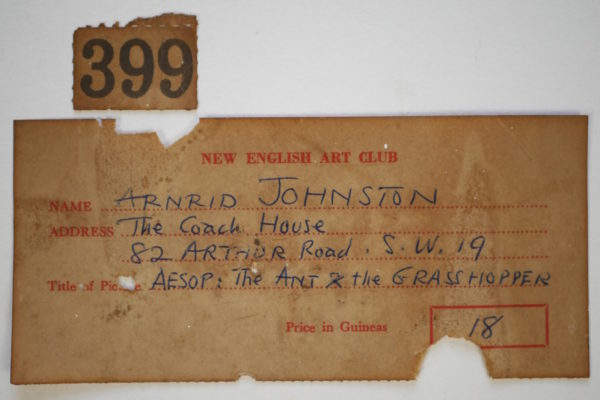 399
NEW ENGLISH ART CLUB
NAME ARNRID JOHNSTON
ADDRESS The Coach House
82 ARTHUR Road . S. W. 19
Title of Picture AESOP: The ANT & the GRASSHOPPER
Price in Guineas 18